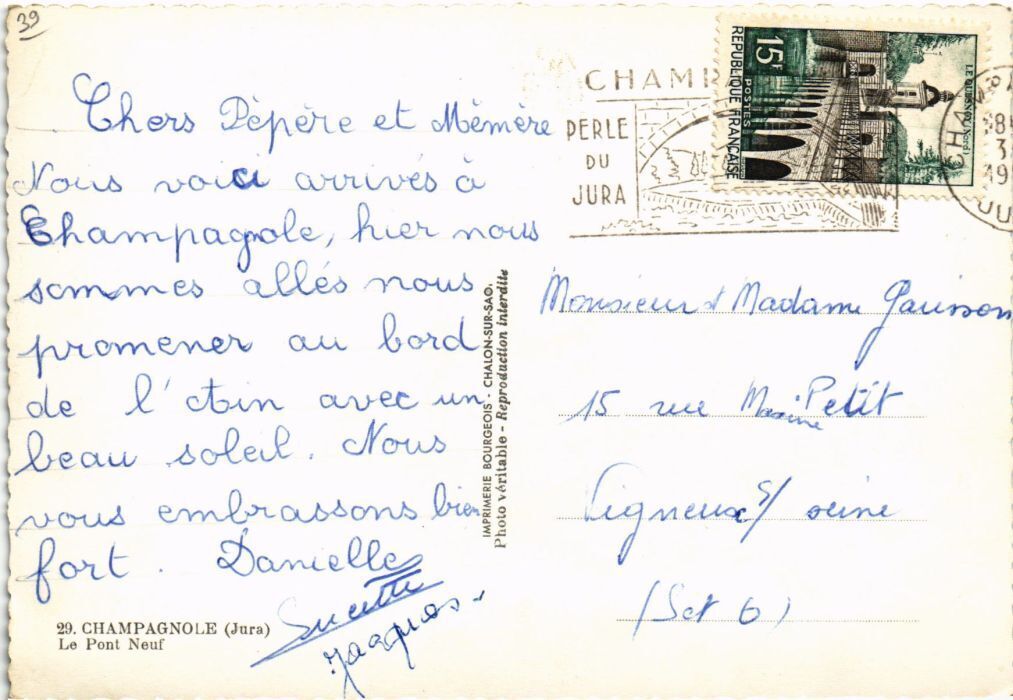 39
Chers Pépère et Mémère
Nous voici arrivés à
Champagnole, hier nous
sommes allés nous
promener au bord
de l'Ain avec un
beau soleil. Nous
vous embrassons bien
fort. Danielle
Jacques
29. CHAMPAGNOLE (Jura)
Le Pont Neuf
IMPRIMERIE BOURGEOIS - CHALON-SUR-SAO.
Photo véritable - Reproduction interdite
CHAMP
PERLE
DU
JURA
15F
POSTES
REPUBLIQUE FRANÇAISE
LE QUESNOY (NORD)
Monsieur et Madame
15 rue Maxime Petit
Vigneux s/ seine
(Set O)